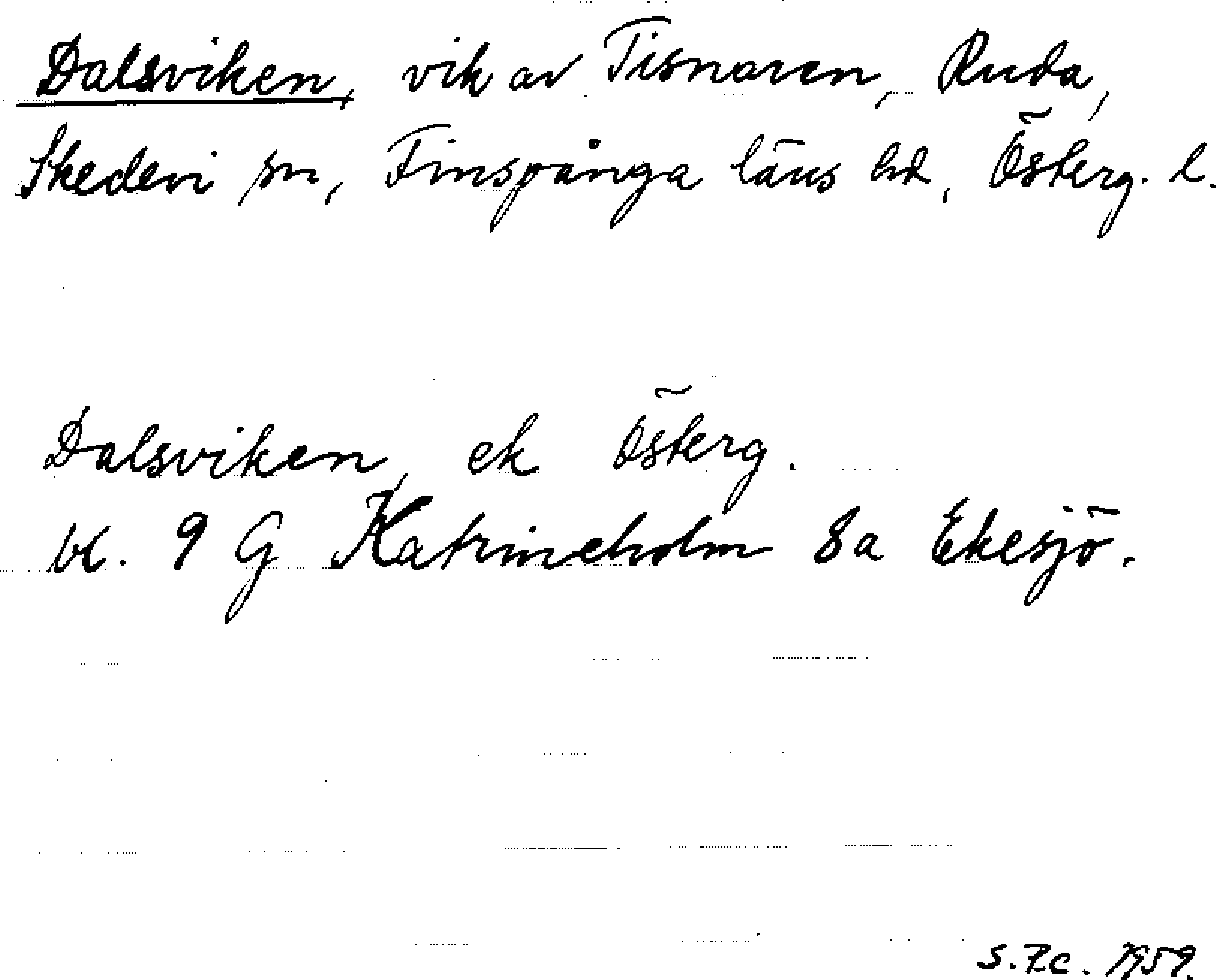 Dalsviken, vik av Tisnaren, Ruda,
Skedevi sn, Finspånga läns hd, Österg. l.
Dalsviken, ek Österg.
bl. 9 G Katrineholm 8a Ekesjö.
1959.